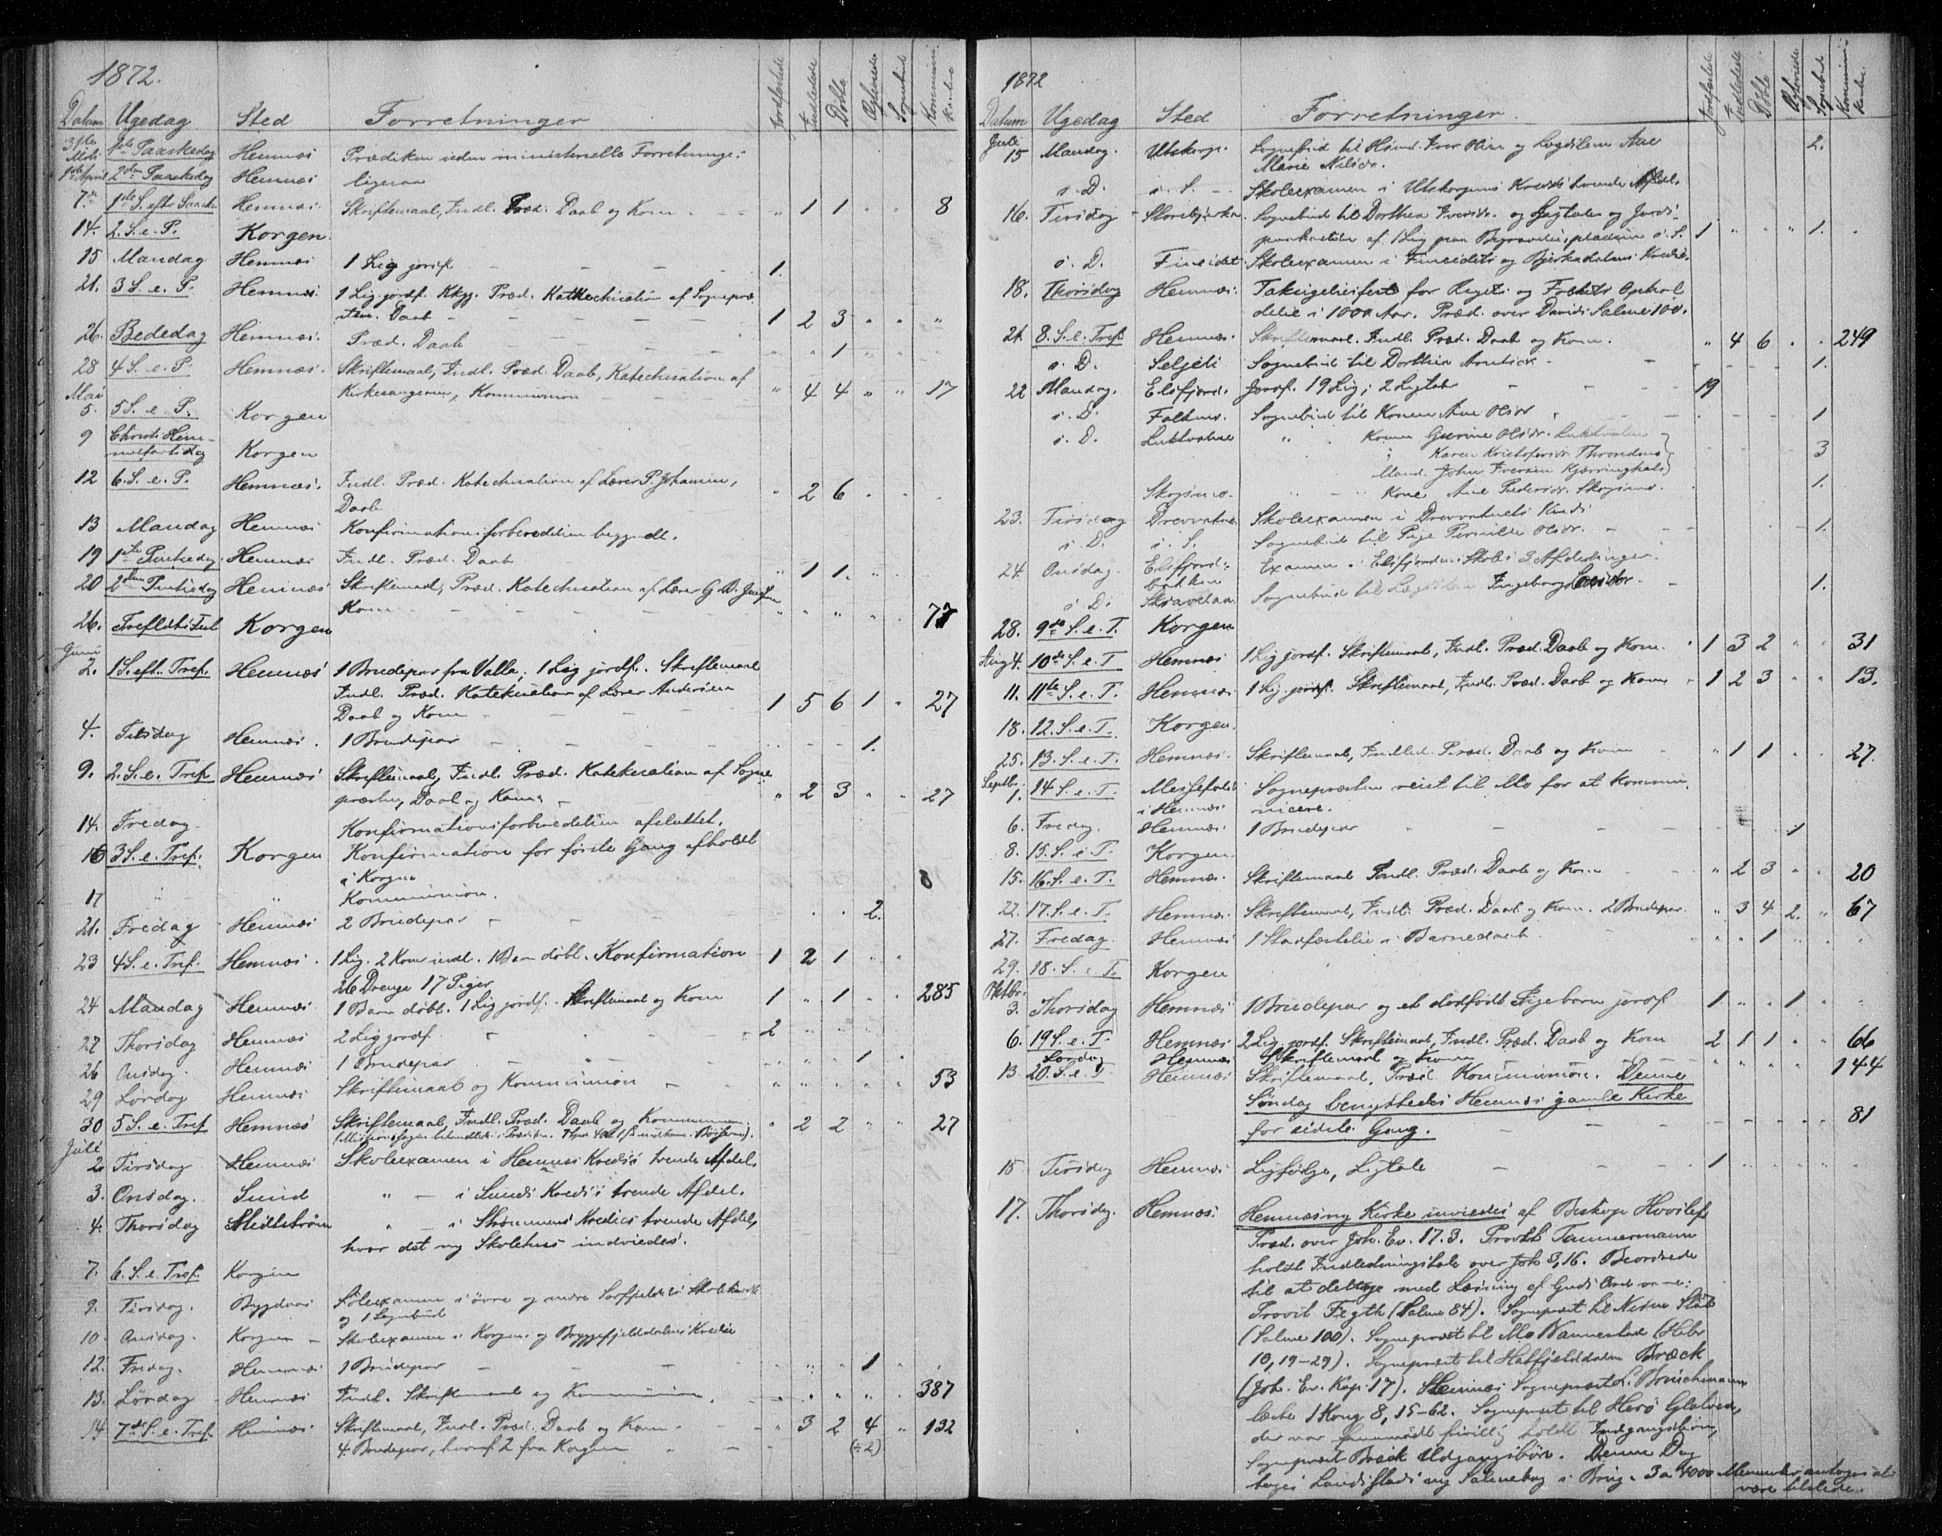 1872.
Datum Ugedag Sted Forretninger Jordfæstede Indledede Døbte Ægteviede Sognebud Kommunikanter
31te Mrts 1ste Paaskedag Hemnæs Prædiken uden ministerielle Forretninger
1ste April 2den Paaskedag Hemnæs ligesaa
7de 1ste S. eft Paaske Hemnæs Skriftemaal, Indl. Præd. Daab og Kom " 1 1 " 8
14. 2. S. e. P. Korgen.
15 Mandag Hemnæs 1 Lig jordf. 1.
21. 3 S. e. P. Hemnæs. 1 Lig jordf. Præd. Kathechisation af Sognepræ
sten. Daab 1 2 3 " " "
26. Bededag Hemnæs. Præd. Daab " " 1 "
28 4 S. e. P. Hemnæs. Skriftemaal, Indl. Præd. Daab, Katechisation af
Kirkesangeren, Kommunion " 4 4 " " 17
Mai
5. 5 S. e. P. Korgen
9 Christi Him-
melfartsdag Korgen
12 6. S. e. P. Hemnæs. Indl. Præd. Katechisation af Lærer P. Johansen,
Daab " 2 6
13 Mandag Hemnæs Konfirmationsforberedelsen begyndt.
19 1ste Pintsedag Hemnæs Indl. Præd. Daab " 1 1.
20 2den Pintsedag Hemnæs Skriftemaal, Præd. Katechisation af Lærer
Kom 77
26. Trefold. Fest Korgen
Juni
2. 1 S. eft. Tref. Hemnæs 1 Brudepar fra Valla, 1 Lig jordf. Skriftemaal
Indl. Præd. Katekisation af Lærer Andersen
Daab og Kom 1 5 6 1 " 27
4. Tirsdag Hemnæs. 1 Brudepar 1.
9. 2. S. e. Tref Hemnæs Skriftemaal, Indl. Præd. Katekisation af Sogne
præsten, Daab og Kom " 2 3 " " 27
14. Fredag. Konfirmationsforberedelsen afsluttet.
16 3 S. e. Tref. Korgen Konfirmation for første Gang afholdt
i Korgen
17 " " Kommunion. 8
21. Fredag Hemnæs 2 Brudepar 2.
23 4 S. e. Tref. Hemnæs. 1 Lig. 2 Koner indl. 1 Barn døbt. Konfirmation 1 2 1 "
26 Drenge 17 Piger
24 Mandag Hemnæs 1 Barn døbt. 1 Lig jordf. Skriftemaal og Kom 1 " 1 " " 285
27 Thorsdag Hemnæs 2 Lig jordf. 2
26 Onsdag. Hemnæs 1 Brudepar 1
29 Lørdag Hemnæs Skriftemaal og Kommunion 53
30 5 S. e. Tref Hemnæs Skriftemaal, Indl. Præd. Daab og Kommunion " 2 2 " " 27
Juli
2 Tirsdag Hemnæs Skoleexamen i Hemnæs Kreds's tvende Afdel.
3. Onsdag. Sund " — i Sunds Kreds's tvende Afdel.
4. Thorsdag Midtstrøm " — i Strømmens Kreds's tvende Afdel,
hvor det ny Skolehus indviedes.
7. 6. S. e. Tref. Korgen
9. Tirsdag. Bygdaas Skoleexamen i øvre og nedre
og 1 Sognebud
10. Onsdag. Korgen Skoleexamen i Korgens og Bryggefjelddalens Kredse
12. Fredag. Hemnæs 1 Brudepar 1
13. Lørdag Hemnæs Indl. Skriftemaal og Kommunion. 387
14 7de S. e. Tref. Hemnæs Skriftemaal, Indl. Præd. Daab og Kom. " 3 2 4 " 132
4 Brudepar, hvoraf 2 fra Korgen (÷2)
1872
Datum Ugedag Sted Forretninger. Jordfæstede Indledede Døbte Ægteviede Sognebud Kommunikanter
Juli
15 Mandag. Utskarpe. Sognebud til Iver Olsen og Ane 2.
Marie Nilsdr.
s. D. s. S. Skoleexamen i Utskarpens Kreds's tvende Afdel.
16. Tirsdag Sognebud til Dorthea Iversdr. og Ligtale og Jords
paakastelse af 1 Lig paa Begravelsespladsen s. S. 1 " " " 1.
s. D. Fineidet Skoleexamen i Fineidets og Bjerkadalens Kredse.
18. Thorsdag Hemnæs. Taksigelsesfest for Rigets og Folkets Ophol
delse i 1000 Aar. Præd. over Davids Salme 100.
21. 8. S. e. Tref. Hemnæs. Skriftemaal. Indl. Præd. Daab og Kom. " 4 6 . . 249
s. D. Seljeli Sognebud til Dorthea Arntsdr. 1.
22 Mandag. Elsfjord. Jordf. 19 Lig; 2 Ligtaler 19
s. D. Sognebud til Konen Ane Olsdr 1
s. D. Luktvatne " " Konen Gurine Olsdr. Luktvatne
Karen Kristofersdr. 3
Mand. John Iversen
Kone Ane Pedersdr. 1.
23. Tirsdag Drevvatne. Skoleexamen i Drevvatnets Kreds
s. D. s. S. Sognebud til Pige Pernille Olsdr. 1.
24. Onsdag. Elsfjord. Examen i Elsfjordens Skoles 3 Afdelinger.
s. D. Sognebud til Ingeborg 1.
28. 9de S. e. T. Korgen
Aug 4. 10de S. e. T Hemnæs 1 Lig jordf. Skriftemaal, Indl. Præd. Daab og Kom. 1 3 2 " 31
11. 11te S. e. T. Hemnæs 1 Lig jordf. Skriftemaal, Indl. Præd. Daab og Kom 1 2 3 " " 13.
18. 12. S. e. T. Korgen.
25. 13. S. e. T. Hemnæs. Skriftemaal, Indled. Præd. Daab og Kom " 1 1 " 27.
Septbr.
1. 14 S. e. T. Messefald
i Hemnæs Sognepræsten reist til Mo for at kommu-
nicere.
6. Fredag. Hemnæs. 1 Brudepar 1
8. 15. S. e. T. Korgen.
15. 16. S. e. T. Hemnæs. Skriftemaal Indl. Præd. Daab og Kom " 2 3 . 20
22. 17. S. e. T. Hemnæs. Skriftemaal, Indl. Præd. Daab og Kom. 2 Brudepar. " 3 4 2. " 67
27. Fredag. Hemnæs 1 Stadfæstelse i Barnedaab. " " 1
29. 18. S. e. T Korgen
Oktbr.
3. Thorsdag Hemnæs 1 Brudepar og et dødfødt Pigebarn jordf 1 " " 1
6. 19 S. e. T. Hemnæs. 2 Lig. jordf. Skriftemaal, Indl. Præd. Daab og Kom 2 1 1 " 66
Lørdag Hemnæs Skriftemaal og Kom 144
13. 20. S. e. T Hemnæs Skriftemaal, Præd. Kommunion. Denne
Søndag benyttedes Hemnæs gamle Kirke
for sidste Gang. 81
15 Tirsdag Hemnæs Ligfølge, Ligtale 1
17. Thorsdag. Hemnæs. Hemnæs ny Kirke indviedes af Biskop Hvoslef
Præd. over Joh. Ev. 17.3. Provst Tannermann
holdt Indledningstale over Joh 3,16. Beordrede
til at deltage med Læsning af Guds Ord vare:
Provst Fegth (Salme 84). Sognepræst til Nesne
(Salme 100). Sognepræst til Mo Wannestad (Hebr
10, 19-29). Sognepræst til Hatfjelddalen Bræck
(Joh. Ev. Kap. 17). Hemnæs Sognepræst
læste 1 Kong 8, 15-62. Sognepræst til Herø
der var fremmødt frivillig holdt Indgangsbøn,
Sognepræst Bræck Udgangsbøn. Denne Dag
toges Landstads ny Salmebog i Brug. 3 a 4000 Mennesker antoges at
være tilstede.